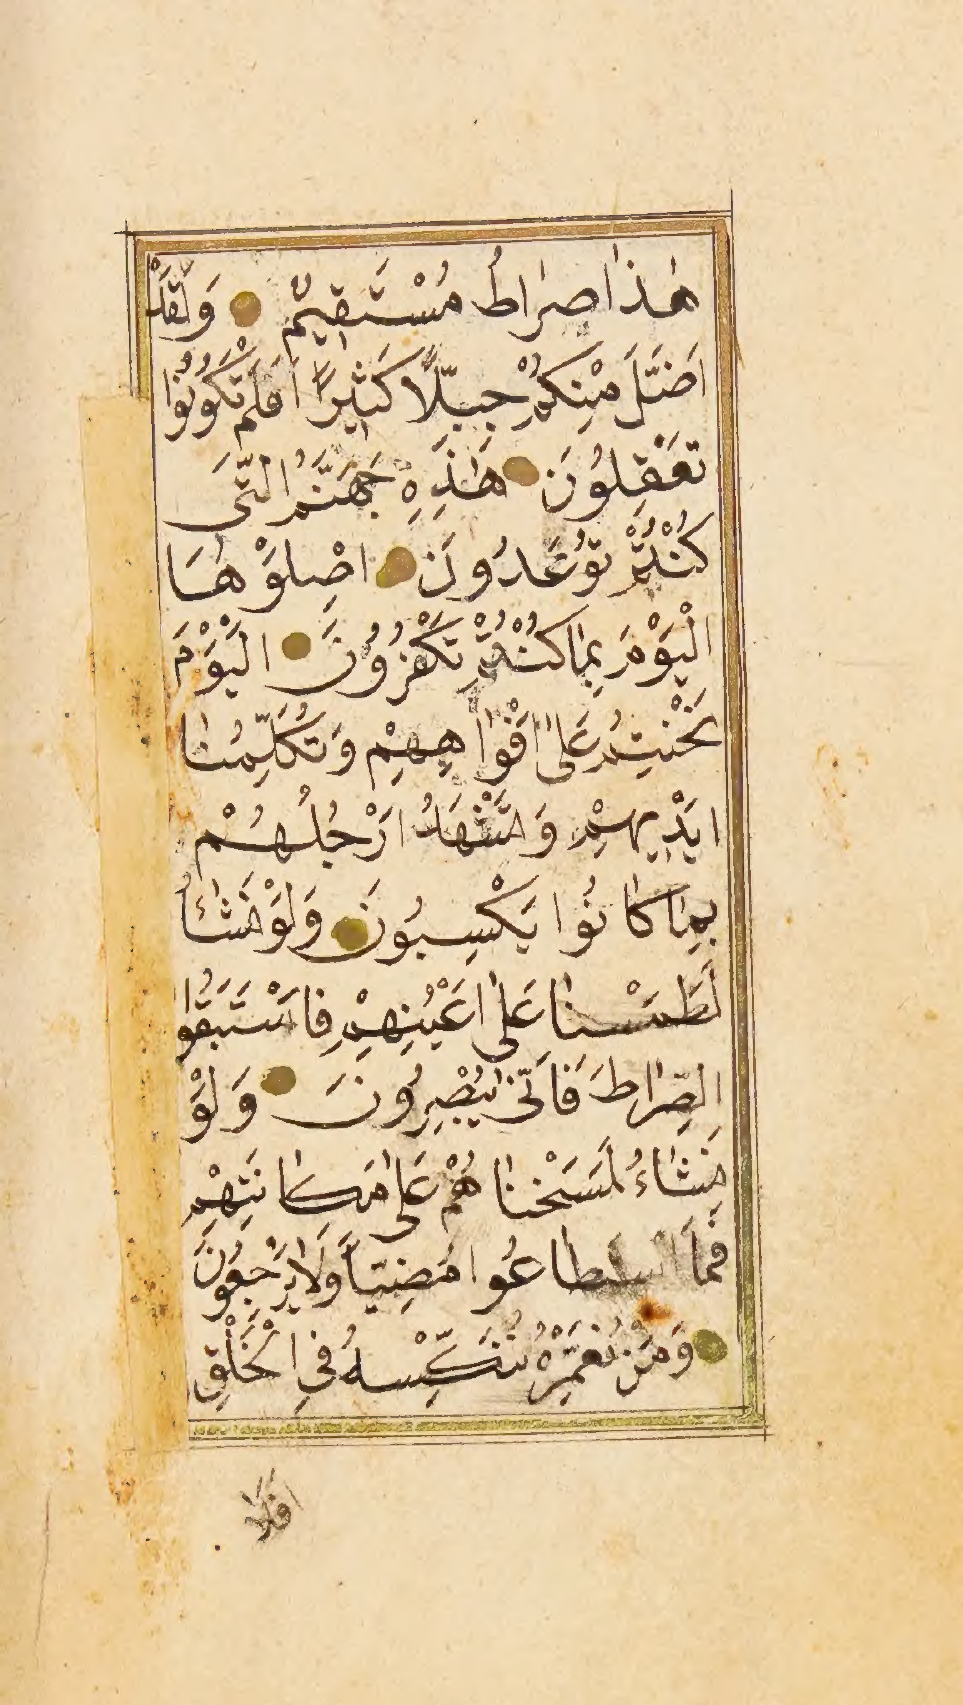 هٰذَا صِرَاطٌ مُسْتَقِيمٌ وَلَقَدْ
اَضَلَّ مِنْكُمْ جِبِلًّا كَثِيرًا اَفَلَمْ تَكُونُوا
تَعْقِلُونَ هٰذِهِ جَهَنَّمُ الَّتِى
كُنْتُمْ تُوعَدُونَ اِصْلَوْهَا
الْيَوْمَ بِمَا كُنْتُمْ تَكْفُرُونَ اَلْيَوْمَ
نَخْتِمُ عَلٰى اَفْوَاهِهِمْ وَتُكَلِّمُنَا
اَيْدِيهِمْ وَتَشْهَدُ اَرْجُلُهُمْ
بِمَا كَانُوا يَكْسِبُونَ وَلَوْ نَشَاءُ
لَطَمَسْنَا عَلٰى اَعْيُنِهِمْ فَاسْتَبَقُوا
الصِّرَاطَ فَاَنّٰى يُبْصِرُونَ وَلَوْ
نَشَاءُ لَمَسَخْنَاهُمْ عَلٰى مَكَانَتِهِمْ
فَمَا اسْتَطَاعُوا مُضِيًّا وَلَا يَرْجِعُونَ
وَمَنْ نُعَمِّرْهُ نُنَكِّسْهُ فِى الْخَلْقِ
اَفَلَا